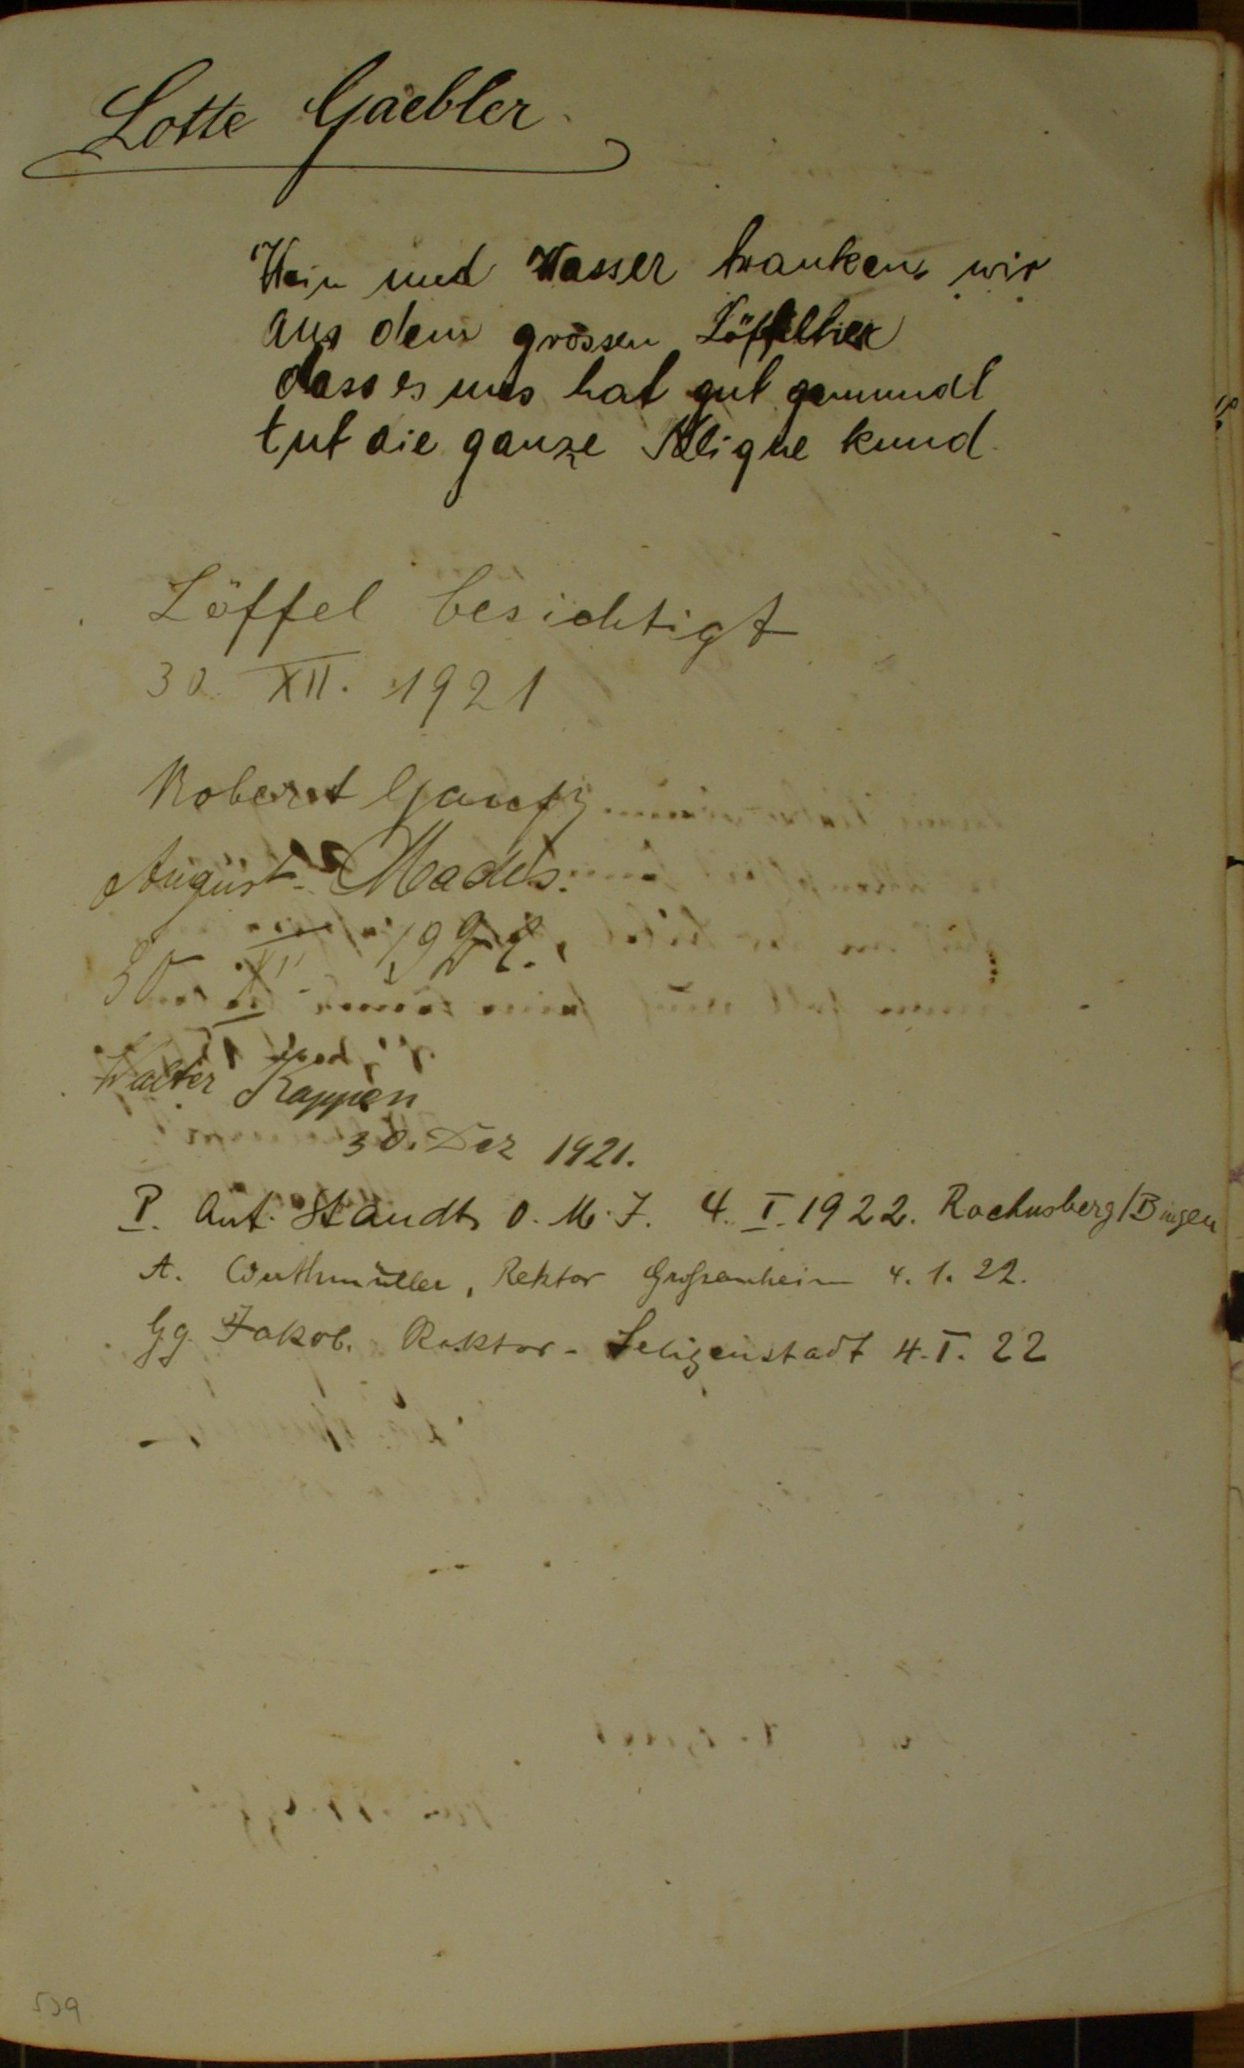 Lotte Gaebler.
Wein und Wasser tranken wir
aus dem grossen Löffel hier
dass es uns hat gut gemundt
tut die ganze Klique kund.
Löffel besichtigt
30. XII. 1921
Robert
August
30 XII 1921.
Walter Kappen
30. Dez 1921.
P. Ant. Staudt O. M. J. 4. I. 1922. Rochusberg/Bingen
A. Wuthmüller, Rektor 4. 1. 22.
Gg. Jakob. Rektor - Seligenstadt 4. I. 22